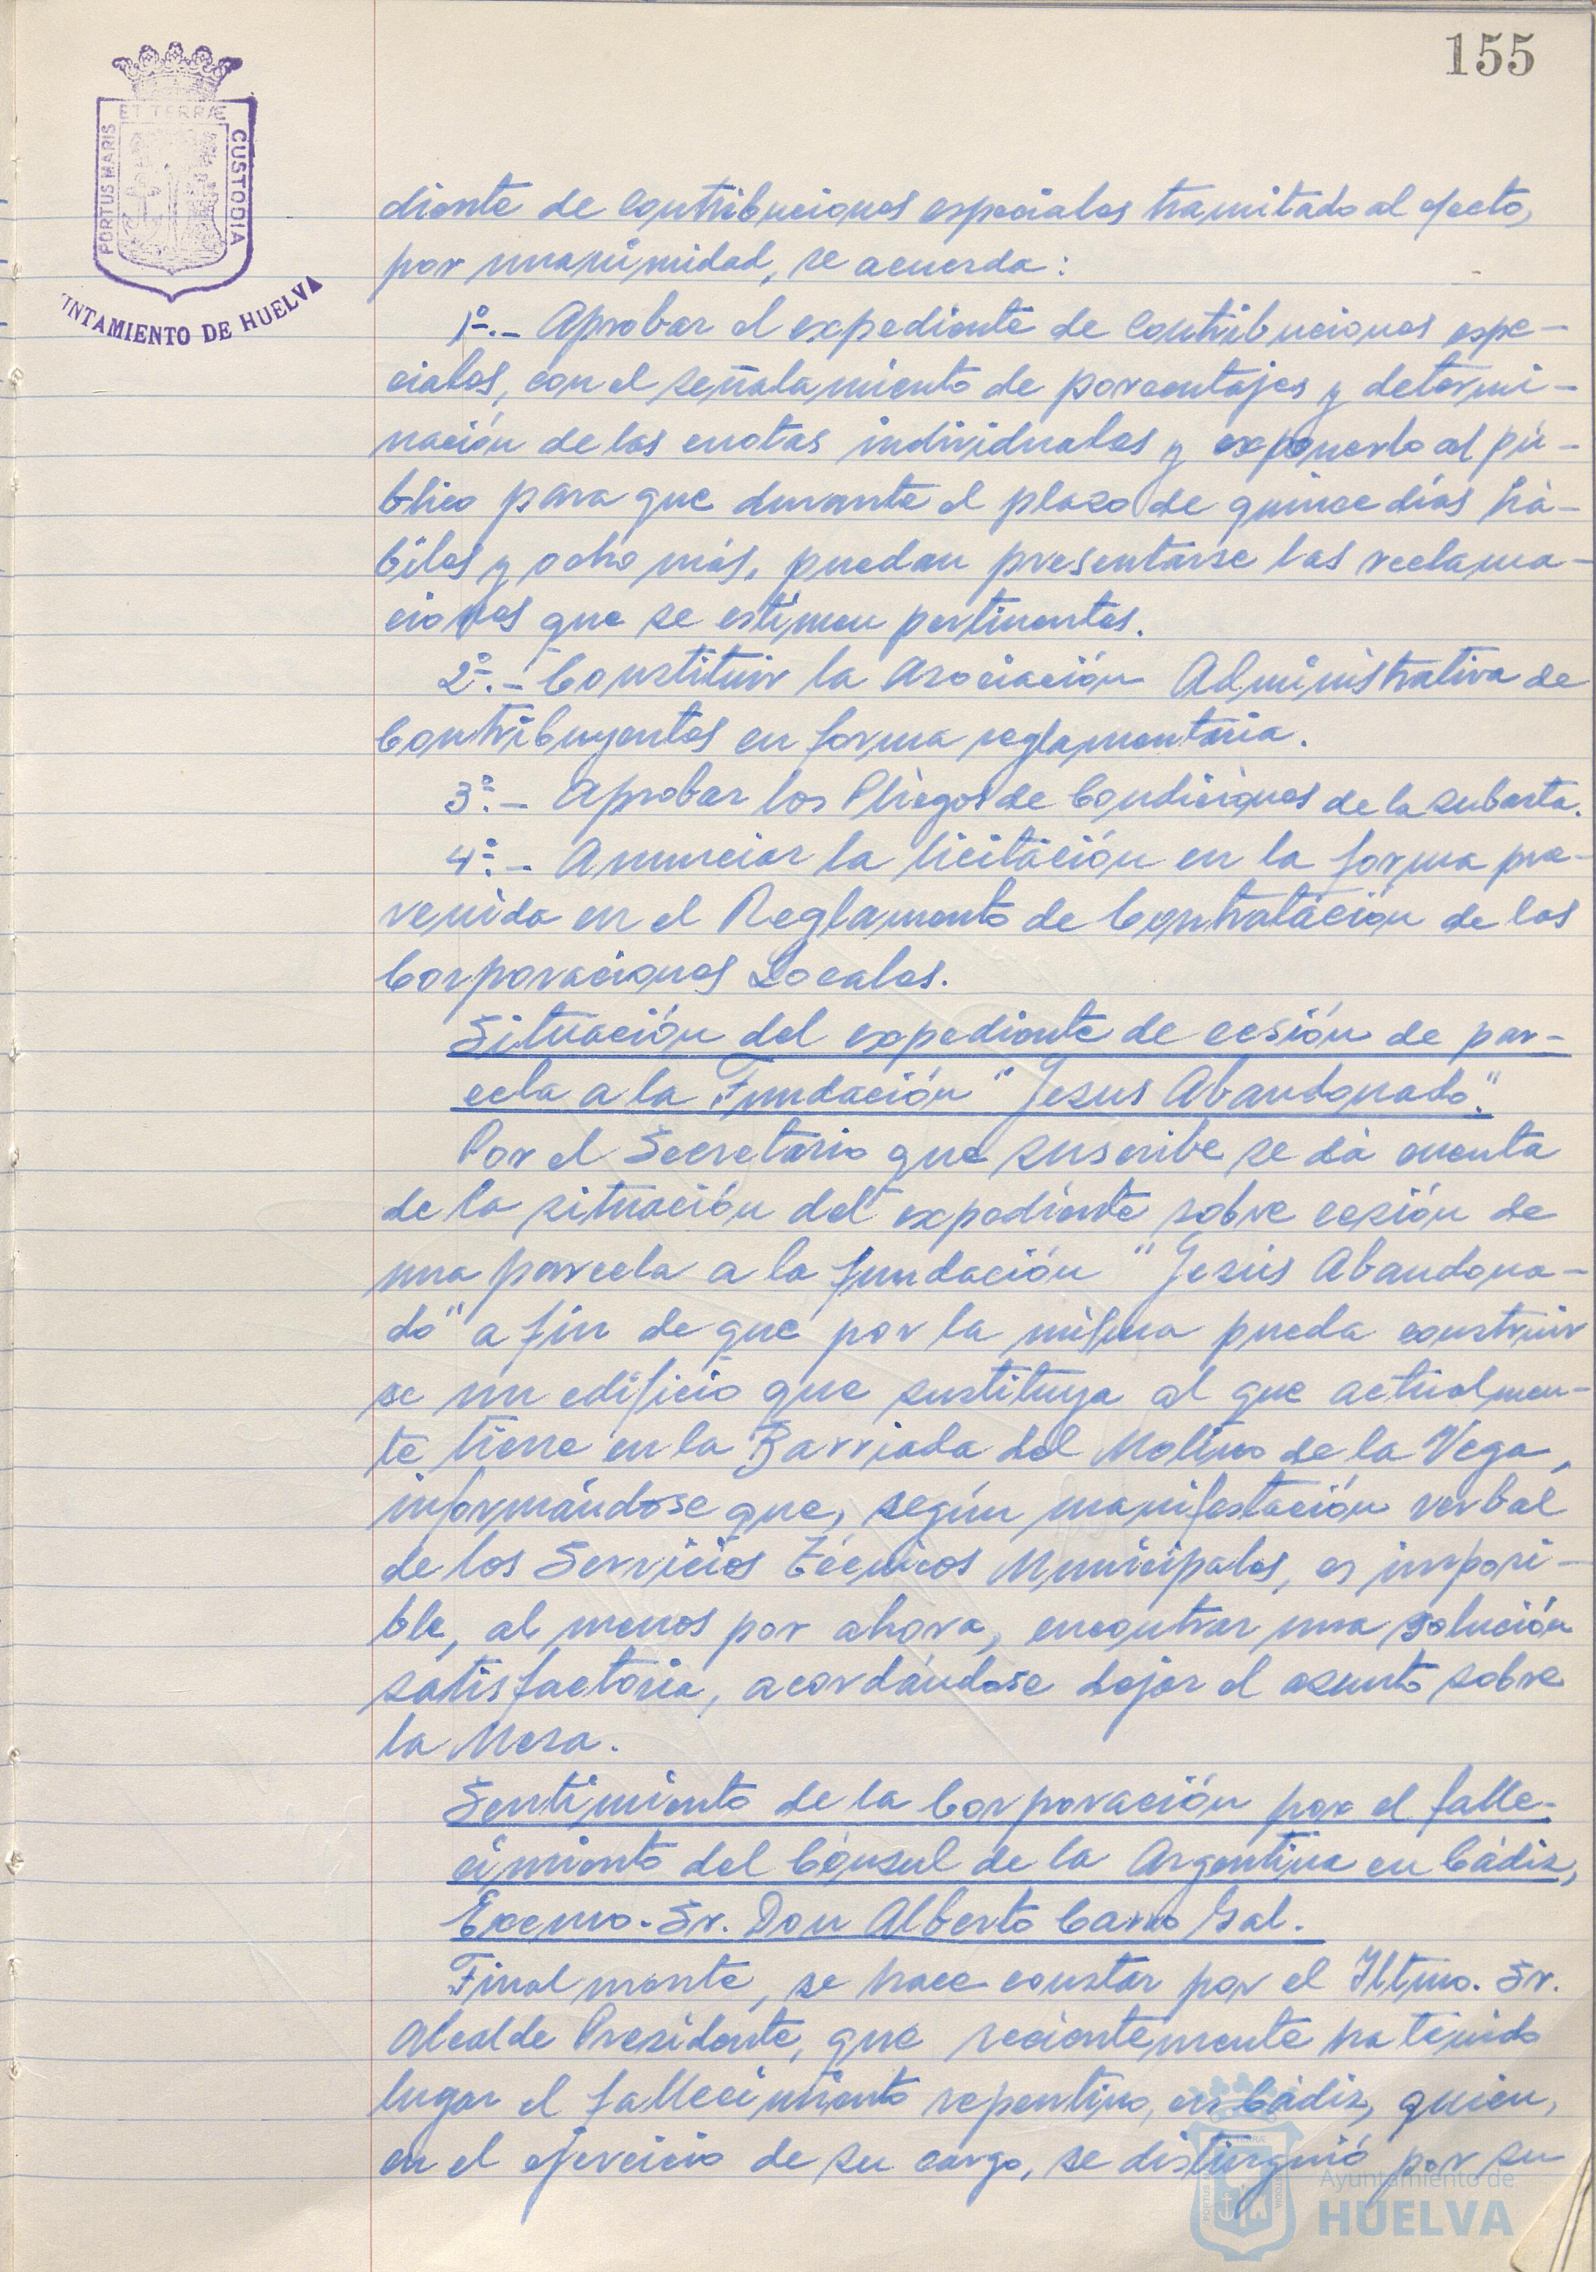 155
ET TERRÆ
PORTUS MARIS
CUSTODIA
UNTAMIENTO DE HUELVA
diente de contribuciones especiales tramitado al efecto,
por unanimidad, se acuerda:
1º.- Aprobar el expediente de contribuciones espe-
ciales, con el señalamiento de porcentajes y determi-
nación de las cuotas individuales y exponerlo al pú-
blico para que durante el plazo de quince días há-
biles y ocho más, puedan presentarse las reclama-
ciones que se estimen pertinentes.
2º.- Constituir la Asociación Administrativa de
Contribuyentes en forma reglamentaria.
3º.- Aprobar los Pliegos de Condiciones de la subasta.
4º.- Anunciar la licitación en la forma pre-
venida en el Reglamento de Contratación de las
Corporaciones Locales.
Situación del expediente de cesión de par-
cela a la Fundación "Jesus Abandonado".
Por el Secretario que suscribe se dá cuenta
de la situación del expediente sobre cesión de
una parcela a la fundación "Jesús Abandona-
do" a fin de que por la misma pueda construir
se un edificio que sustituya al que actualmen-
te tiene en la Barriada del Molino de la Vega,
informándose que, según manifestación verbal
de los Servicios Técnicos Municipales, es imposi-
ble, al menos por ahora, encontrar una solución
satisfactoria, acordándose dejar el asunto sobre
la Mesa.
Sentimiento de la Corporación por el falle-
cimiento del Cónsul de la Argentina en Cádiz,
Excmo. Sr. Don Alberto Caxxo Gal.
Finalmente, se hace constar por el Iltmo. Sr.
Alcalde Presidente, que recientemente ha tenido
lugar el fallecimiento repentino, en Cádiz, quien,
en el ejercicio de su cargo, se distinguió por su
Ayuntamiento de
HUELVA